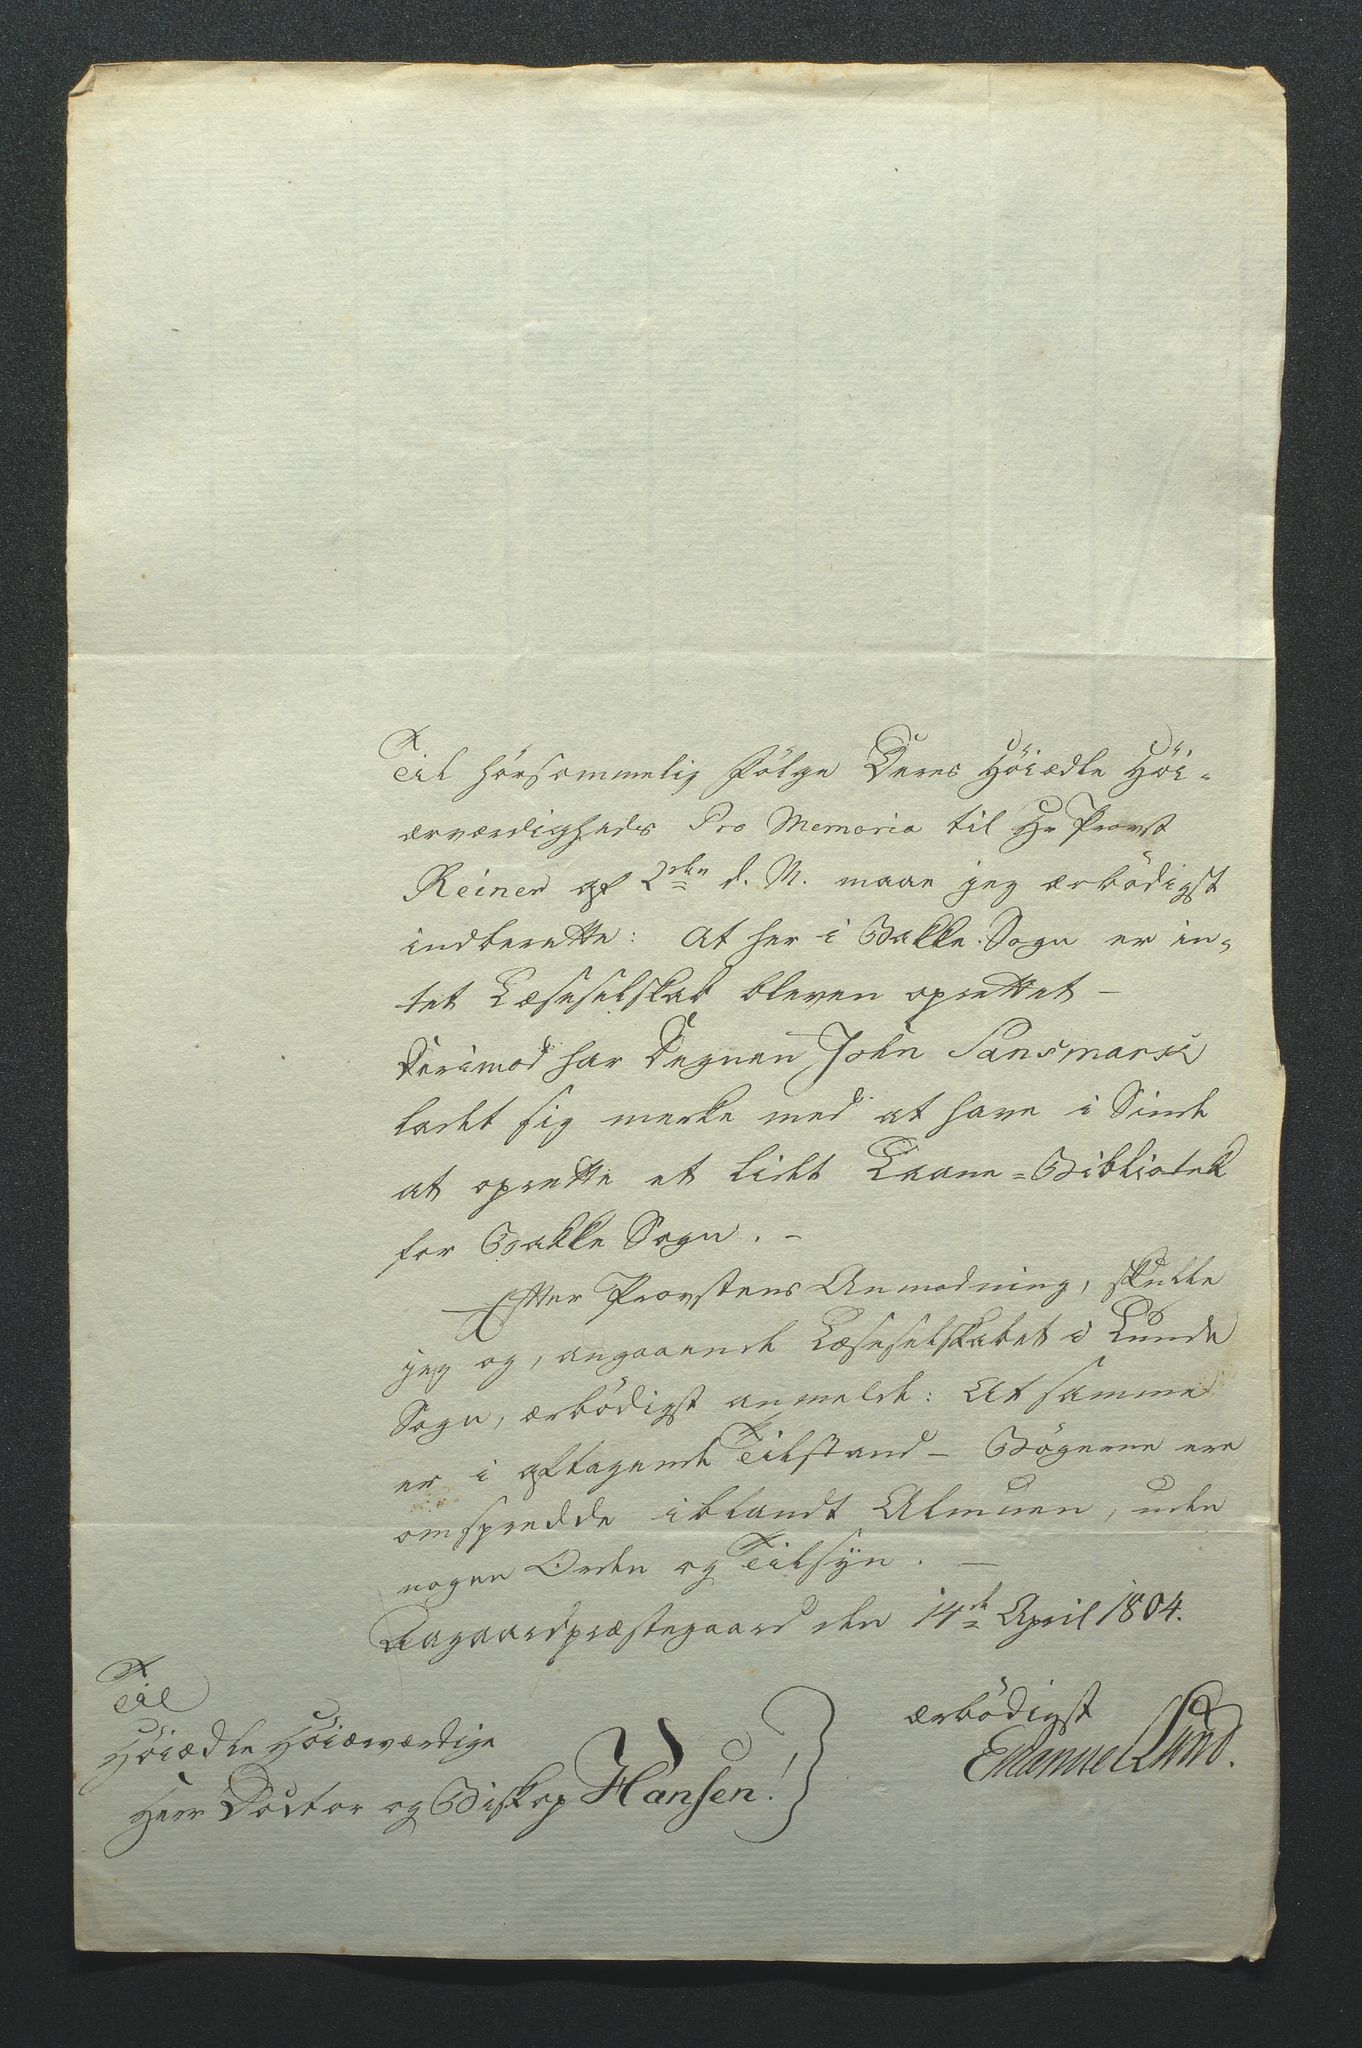 Til hörsommelig Fölge Deres Höiædle Höi-
ærværdigheds Pro Memoria til Hr Provst
Reiner af 2den d. M. maae jeg ærbödigst
indberette: At her i Bakke Sogn er in-
tet Læseselskab bleven oprettet -
Derimod har Degnen John Sansmark
ladet sig merke med at have i Sinde
at oprette et lidet Laane-Bibliotek
for Bakke Sogn. -
Efter Provstens Anmodning, skulle
jeg og, angaaende Læseselskabet i Lunde
Sogn, ærbödigst anmelde: At samme
er i aftagende Tilstand - Bögerne ere
omspredde iblandt Almuen, uden
nogen Orden og Tilsyn. -
Aagaardpræstegaard den 14de April 1804.
ærbödigst
Emanuel Lund.
Til
Höiædle Höiærværdige
Herr Doctor og Biskop Hansen!